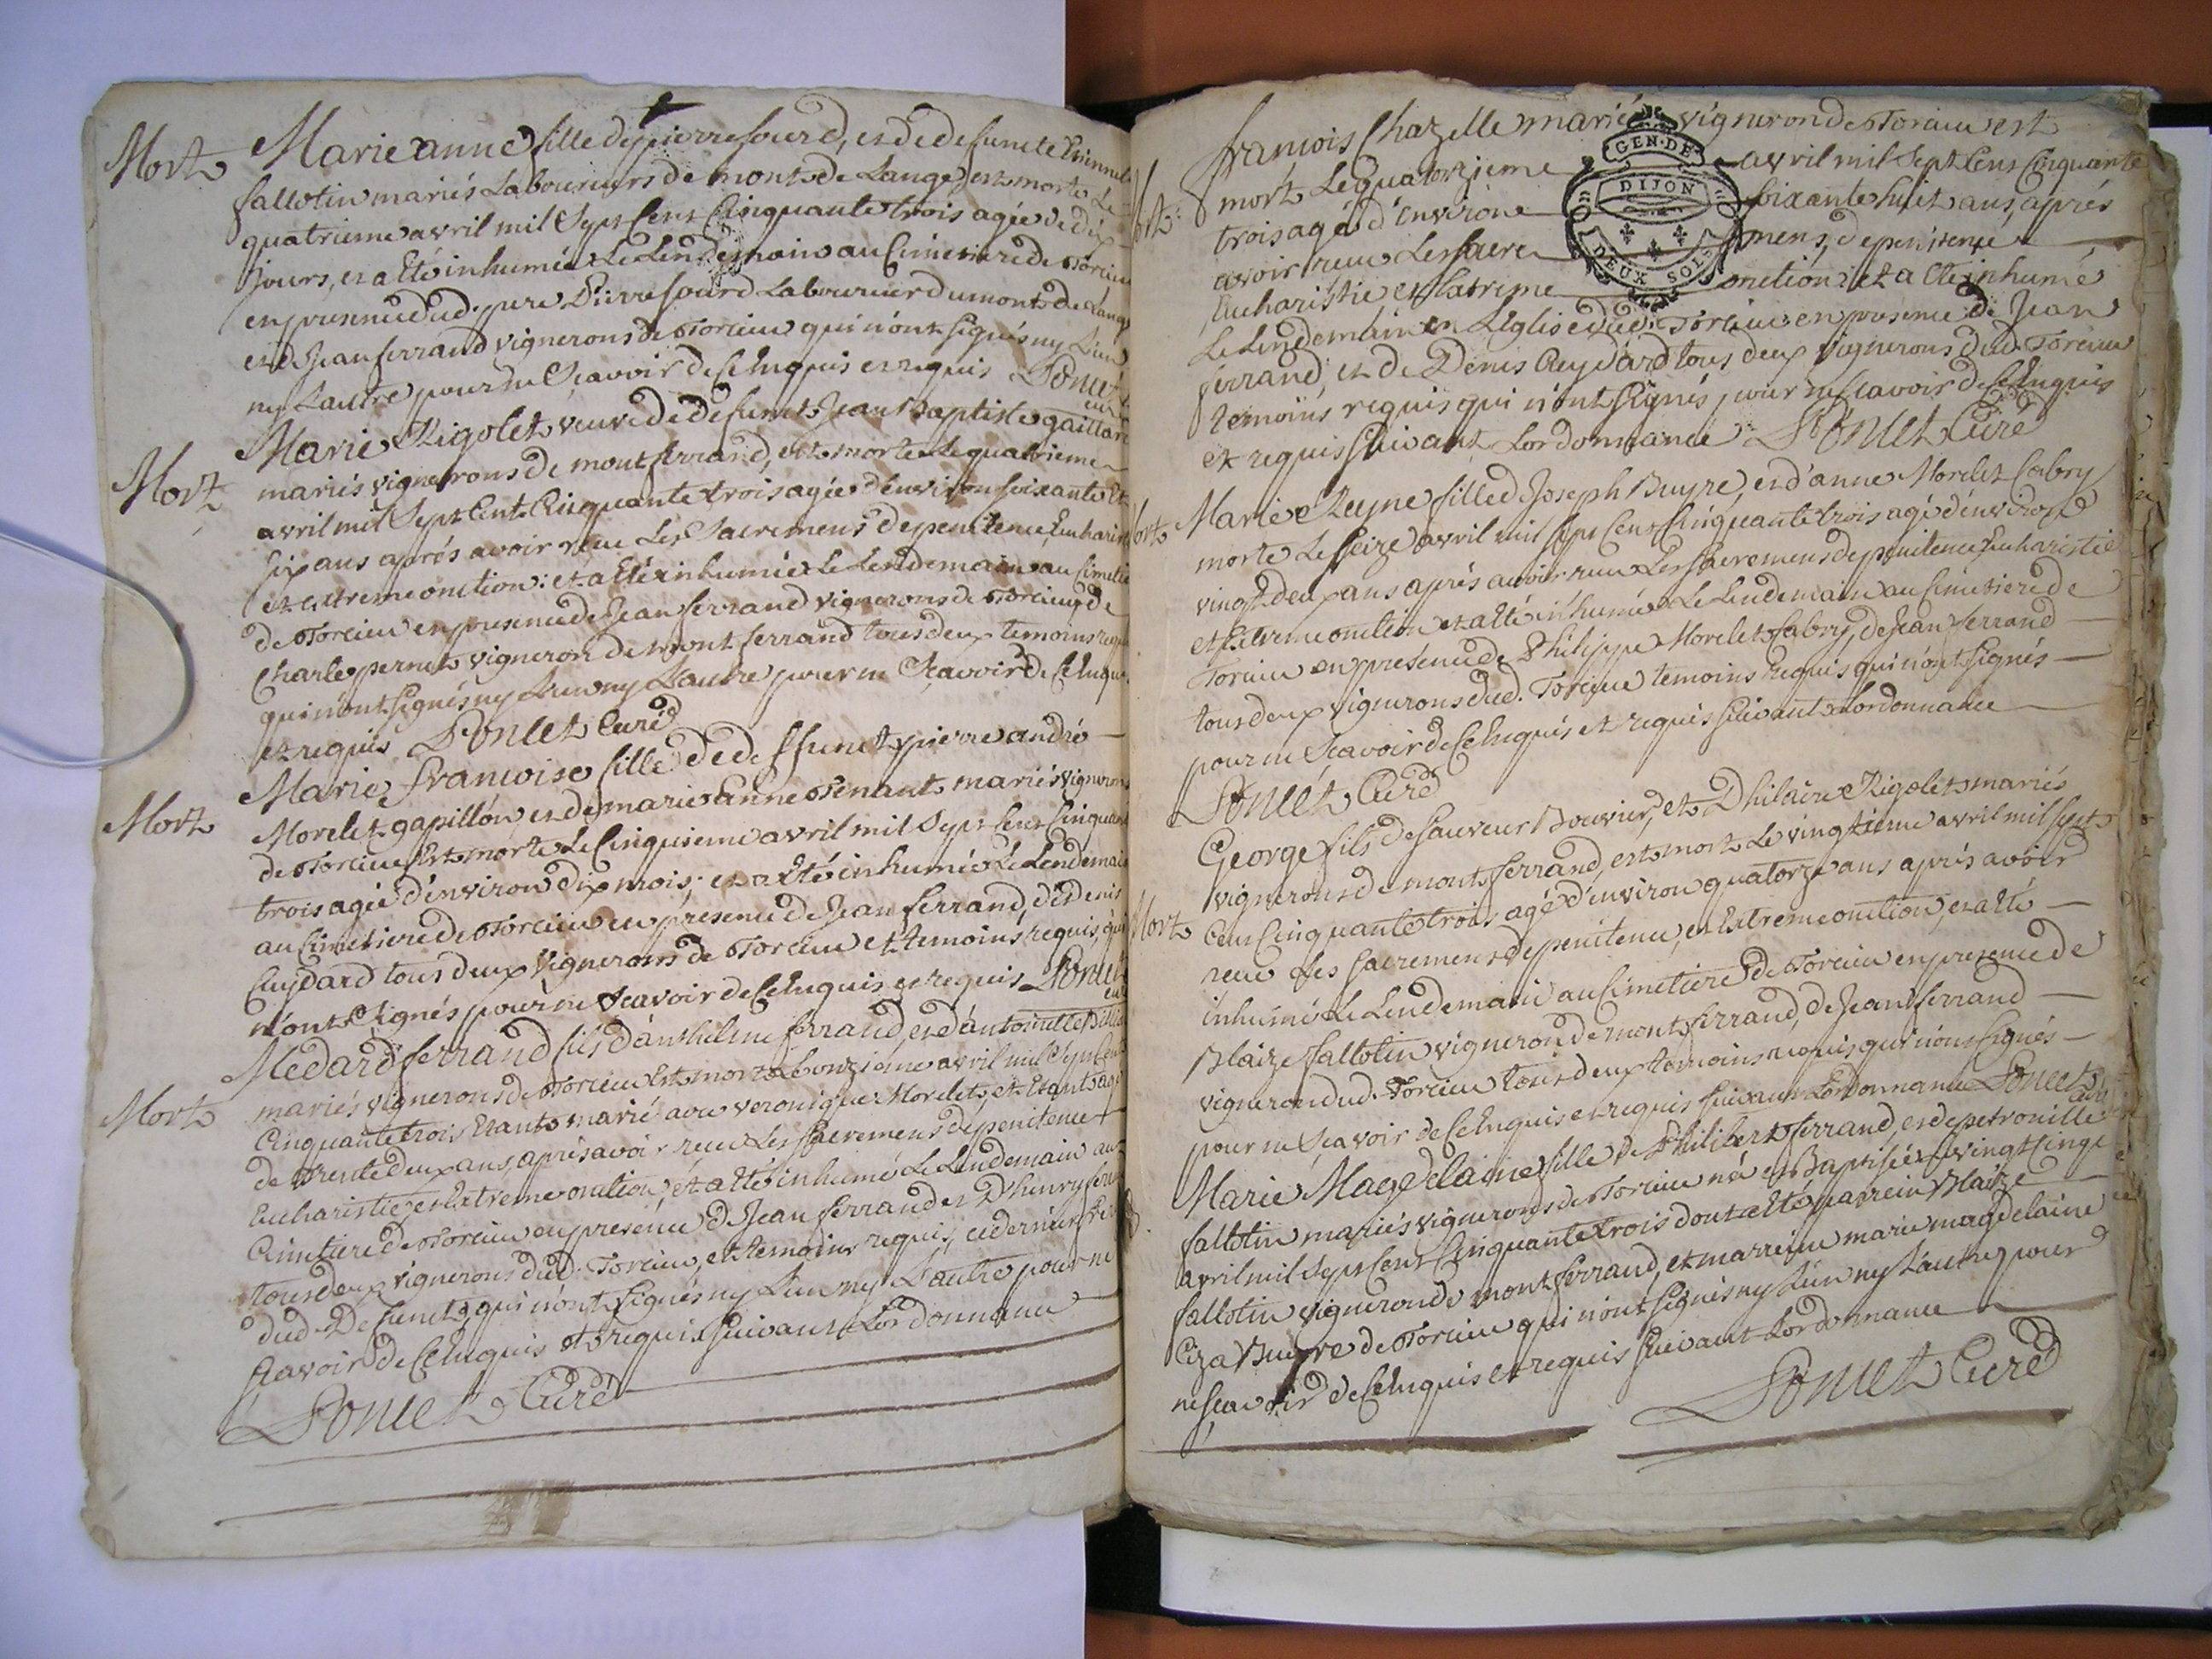 Mort
Marie anne fille de pierre sourd, et de defuncte Etiennette
fallotin mariés Laboureurs de mont de Lange est morte Le
quatrieme avril mil Sept Cent Cinquante trois agée de dix
jours, et a Eté inhumée Le Lendemain au Cimetiere de Torcieu
en presence dud. pere Pierre Sourd Laboureur du mont de Lange
et de Jean ferrand vignerons de Torcieu qui n'ont signés ny L'un
ny L'autre pour ne Scavoir de Ce Enquis et requis Poncet
curé
Mort
Marie Rigolet veuve de defunct Jean Baptiste gaillard
mariés vignerons de montferrand, est morte Le quatrieme
avril mil Sept Cent Cinquante trois agée d'environ soixante et
six ans aprés avoir recu Les Sacremens de penitence, Eucharistie
et extreme onction: et a Eté inhumée Le Lendemain au Cimetiere
de Torcieu en presence de Jean ferrand vignerons de Torcieu, de
Charle pernet vigneron de montferrand tous deux temoins requis
qui n'ont signés ny L'un ny L'autre pour ne Scavoir de Ce Enquis
et requis Poncet Curé
Mort
Marie francoise fille de deffunct pierre andré
Morelet gapillon, et de marie anne Tenant mariés vignerons
de Torcieu Est morte Le Cinquieme avril mil Sept Cent Cinquante
trois agée d'environ dix mois; et a Eté inhumée Le Lendemain
au Cimetiere de Torcieu en presence de Jean ferrand, de Denis
Cuydard tous deux vignerons de Torcieu et temoins requis, qui
n'ont Signés pour ne Scavoir de Ce Enquis et requis Poncet
curé
Mort
Medard ferrand fils d'anthelme ferrand, et d'antoinette
mariés vignerons de Torcieu Est mort Le onzieme avril mil Sept Cent
Cinquante trois Etant marié avec veronique Morelet, et Etant agé
de trente deux ans, aprés avoir recu Les sacremens de penitence
Eucharistie, et Extreme onction, et a Eté inhumé Le Lendemain au
Cimetiere de Torcieu en presence de Jean ferrand et D'henry
tous deux vignerons dud. Torcieu, et temoins requis, ce dernier frere
dud. Defunct, qui n'ont signés ny L'un ny L'autre pour ne
scavoir de Ce Enquis et requis suivant L'ordonnance
Poncet Curé
GEN·DE
DIJON
DEUX SOLS
francois Chazelle marié vigneron de Torcieu est
mort Le quatorzieme avril mil Sept Cent Cinquante
Mort
trois agé d'environ soixante huit ans, aprés
avoir recu Les sacremens, de penitence
Eucharistie et Extreme onction: et a Eté inhumé
Le Lendemain en L'eglise dud. Torcieu en presence de Jean
ferrand, et de Denis Cuydard tous deux vignerons dud. Torcieu
temoins requis qui n'ont signés, pour ne scavoir de Ce Enquis
et requis suivant L'ordonnance Poncet Curé
Mort
Marie Reyne fille de Joseph Buyre, et d'anne Morelet Cabry
morte Le seize avril mil Sept Cent Cinquante trois agé d'environ
vingt deux ans aprés avoir recu Les sacremens de penitence Eucharistie
et Extreme onction et a Eté inhumée Le Lendemain au Cimetiere de
Torcieu en presence de Philippe Morelet Cabry, de Jean ferrand
tous deux vignerons dud. Torcieu temoins requis qui n'ont signés
pour ne Scavoir de Ce Enquis et requis suivant L'ordonnance
Poncet Curé
George fils de sauveur Bouvier, et D'hilaire Rigolet mariés
vignerons de montferrand, est mort Le vingtieme avril mil sept
Mort
Cent Cinquante trois, agé d'environ quatorze ans aprés avoir
recu Les sacremens de penitence, et Extreme onction, et a Eté
inhumé Le Lendemain au Cimetiere de Torcieu en presence de
Blaize fallotin vigneron de montferrand, de Jean ferrand
vigneron dud. Torcieu tous deux temoins requis qui n'ont signés
pour ne Scavoir de Ce Enquis et requis suivant L'ordonnance Poncet
curé
Marie Magdelaine fille de Philibert ferrand, et de petronille
fallotin mariés vignerons de Torcieu née et Baptisée Le vingt Cinq
avril mil Sept Cent Cinquante trois dont a Eté parrein Blaize
fallotin vigneron de montferrand, et marreine marie magdelaine
Ciza Buyre de Torcieu qui n'ont signés ny L'un ny L'autre pour
ne scavoir de Ce Enquis et requis suivant L'ordonnance
Poncet Curé